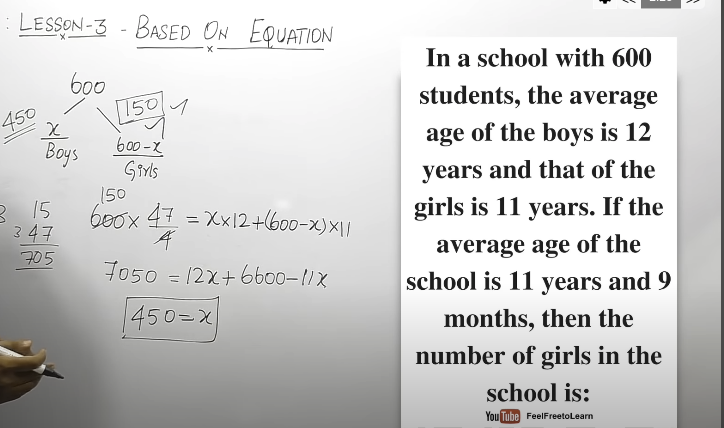 : LESSON-3 - BASED ON EQUATION
600
450
150
x
Boys
600-x
Girls
15
3 47
705
150
600 x 47/4 = x×12+(600-x)×11
7050 = 12x+6600-11x
450=x
In a school with 600
students, the average
age of the boys is 12
years and that of the
girls is 11 years. If the
average age of the
school is 11 years and 9
months, then the
number of girls in the
school is:
YouTube FeelFreetoLearn